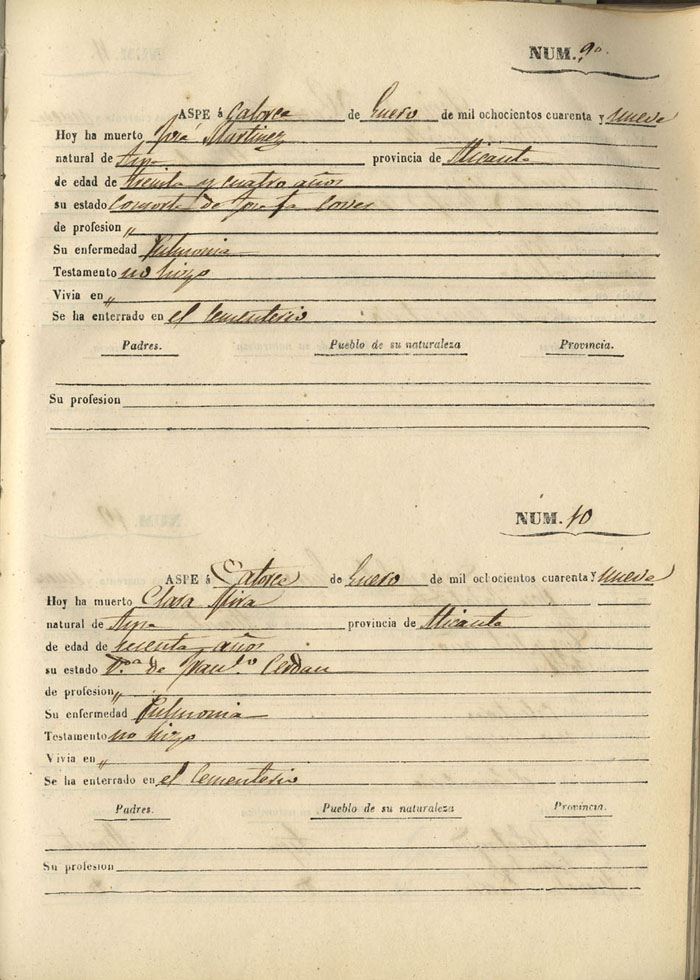 NUM. 9
ASPE á Catorce de Enero de mil ochocientos cuarenta y nueve
Hoy ha muerto José Martinez
natural de Aspe provincia de Alicante
de edad de treinta y cuatro años
su estado Consorte de Josefa
de profesion "
Su enfermedad Pulmonia
Testamento no hizo
Vivia en "
Se ha enterrado en el Cementerio
Padres. Pueblo de su naturaleza Provincia.
Su profesion
NUM. 10
ASPE á Catorce de Enero de mil ochocientos cuarenta y nueve
Hoy ha muerto Clara Mira
natural de Aspe provincia de Alicante
de edad de años
su estado V.ª de Cerdan
de profesion "
Su enfermedad Pulmonia
Testamento no hizo
Vivia en "
Se ha enterrado en el Cementerio
Padres. Pueblo de su naturaleza Provincia.
Su profesion